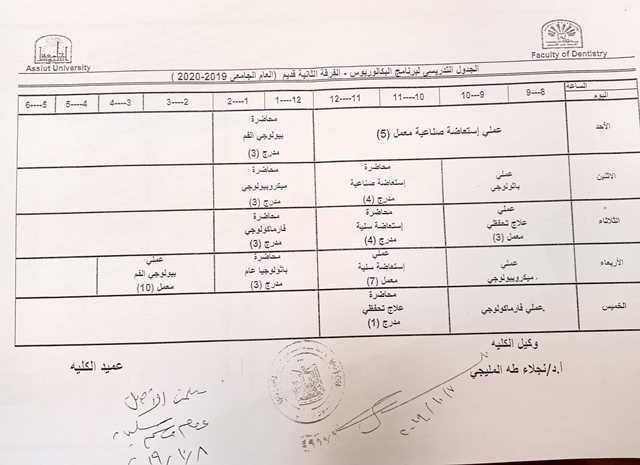 Assiut University
Faculty of Dentistry
الجدول التدريسى لبرنامج البكالوريوس - الفرقة الثانية قديم (العام الجامعى 2019-2020 )
الساعه
اليوم
8---9
9---10
10---11
11---12
12---1
1---2
2---3
3---4
4---5
5---6
الأحد
عملي إستعاضة صناعية معمل (5)
محاضرة
بيولوجي الفم
مدرج (3)
الاثنين
عملي
باثولوجي
محاضرة
إستعاضة صناعية
مدرج (4)
محاضرة
ميكروبيولوجي
مدرج (3)
الثلاثاء
عملي
علاج تحفظي
معمل (3)
محاضرة
إستعاضة سنية
مدرج (4)
محاضرة
فارماكولوجي
مدرج (3)
الأربعاء
عملي
ميكروبيولوجي
عملي
إستعاضة سنية
معمل (7)
محاضرة
باثولوجيا عام
مدرج (3)
عملي
بيولوجي الفم
معمل (10)
الخميس
عملي فارماكولوجي
محاضرة
علاج تحفظي
مدرج (1)
وكيل الكليه
أ.د/نجلاء طه المليجي
عميد الكليه